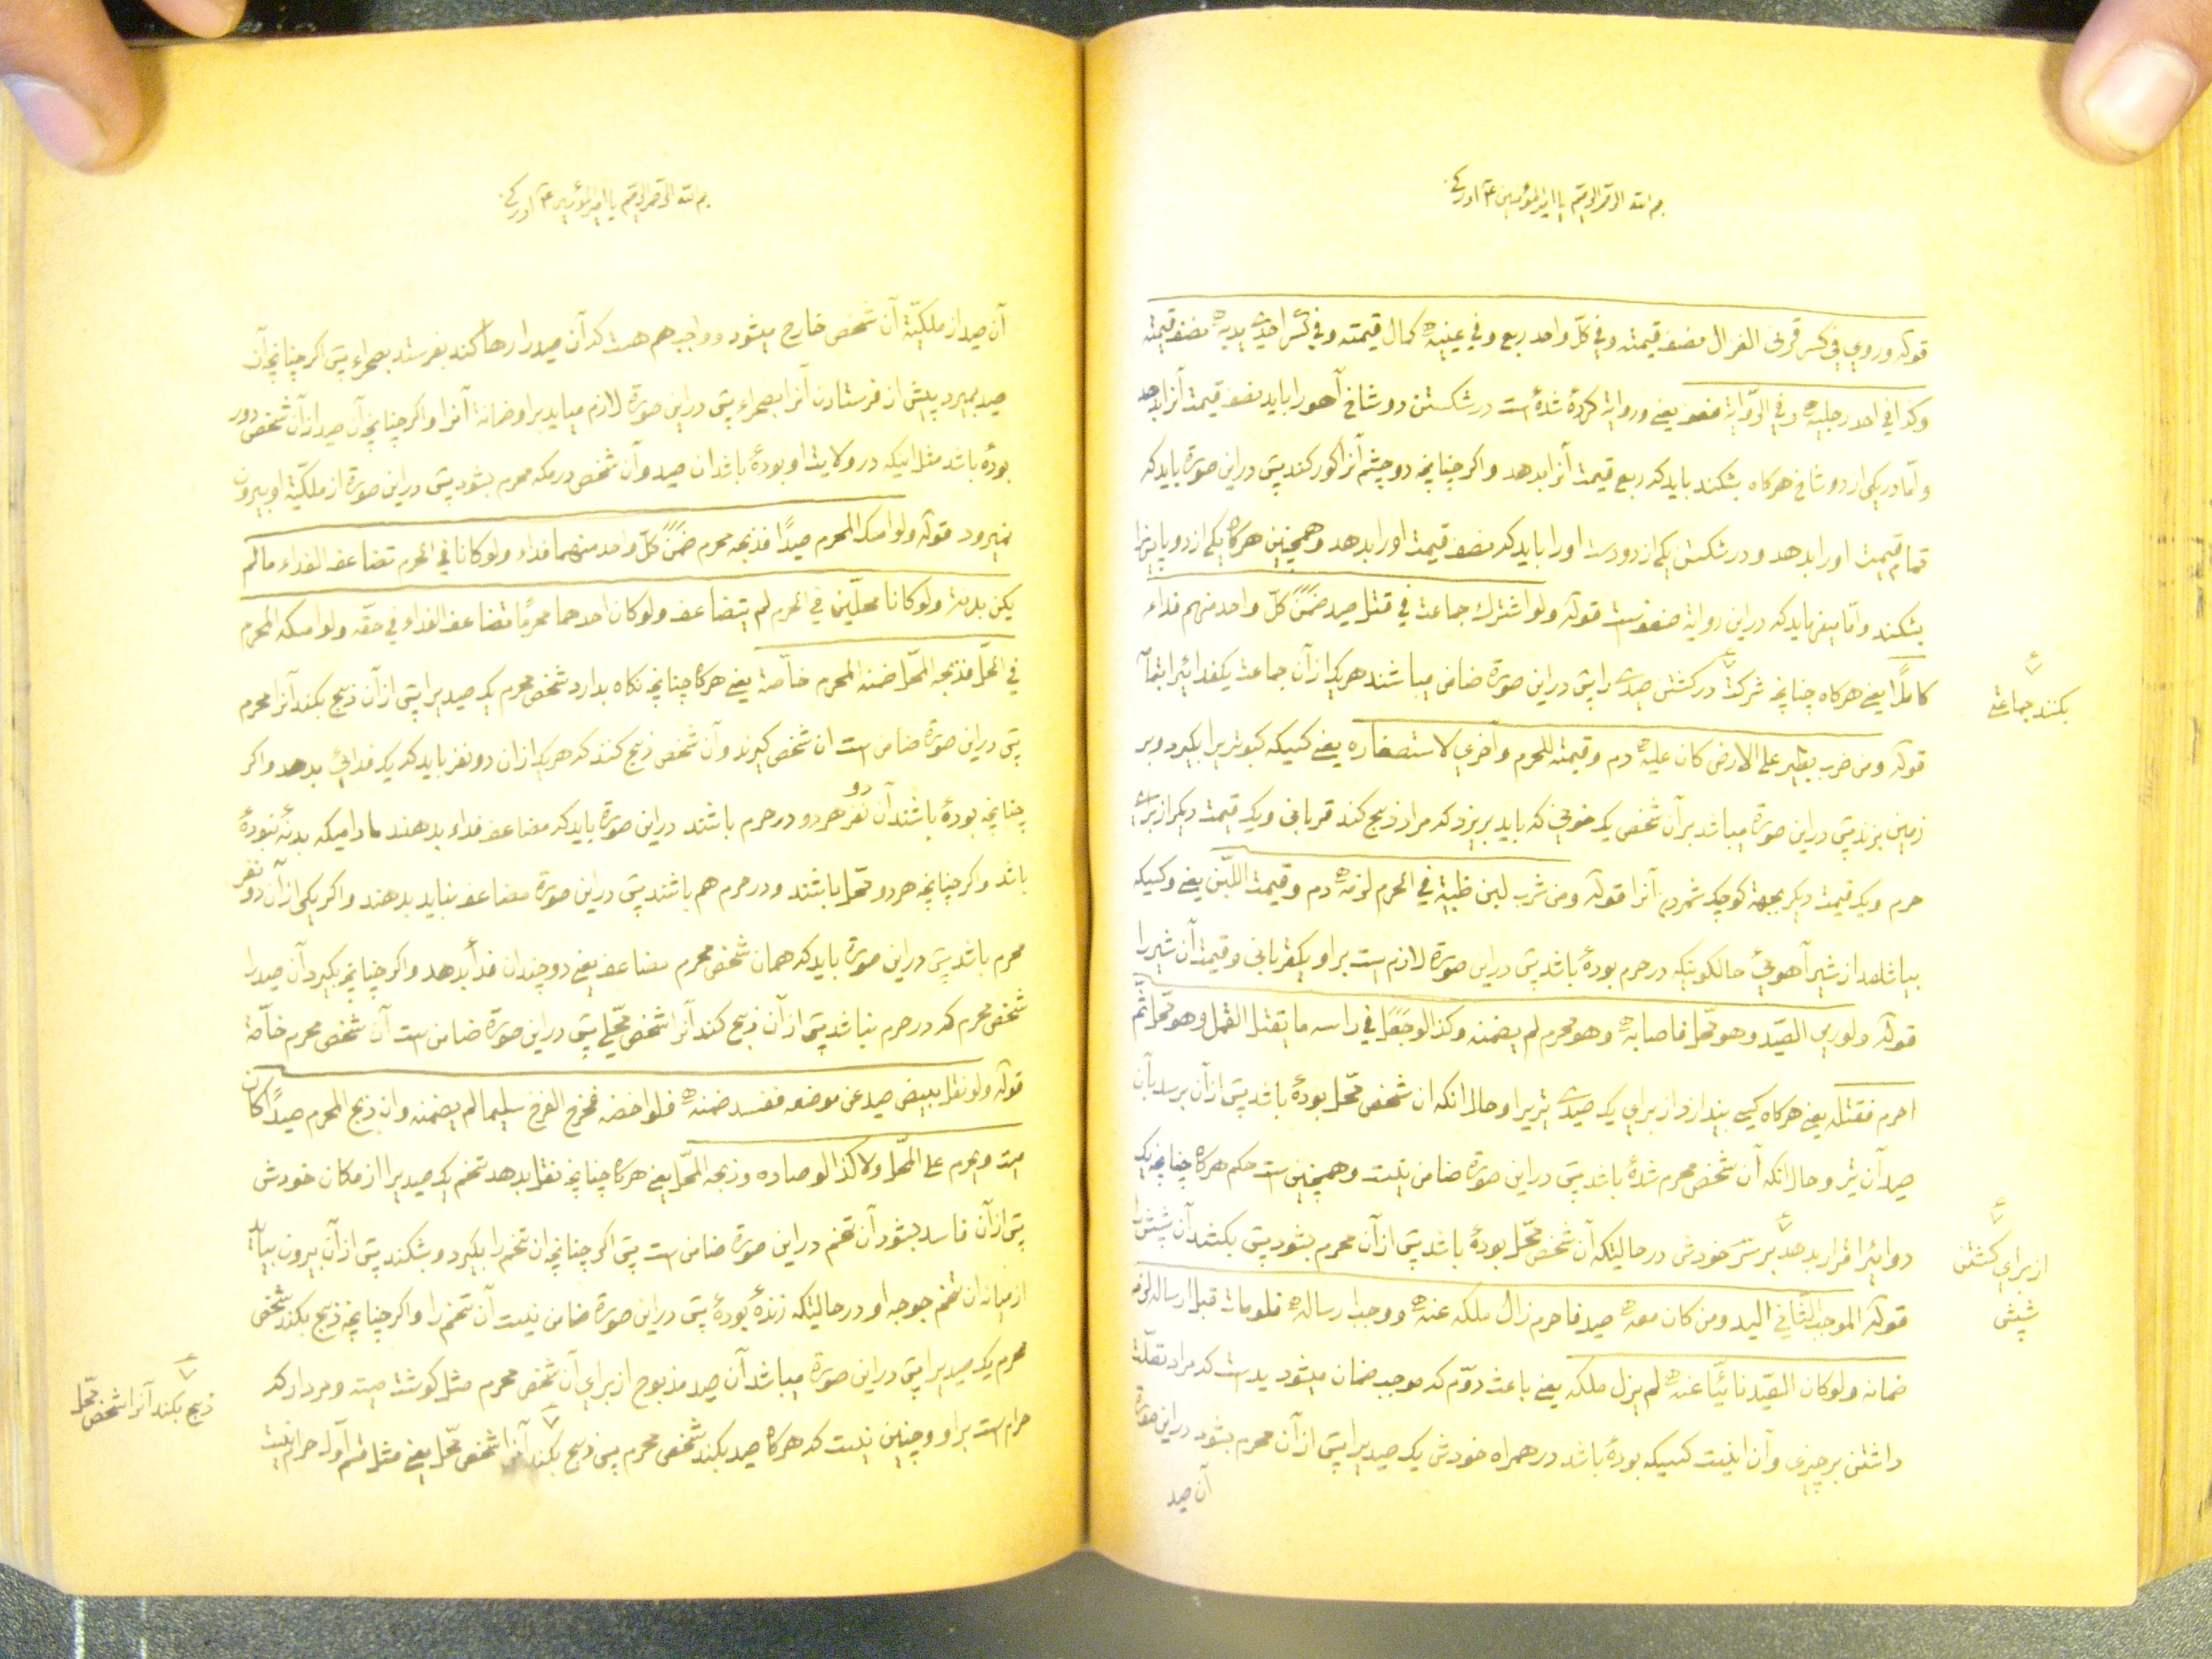 بسم الله الرحمن الرحیم یا امیرالمؤمنین ع ادرکنی
قوله وروي في كسر قرنى الغزال نصف قيمته وفي كلّ واحد ربع وفي عينيه كمال قيمته وفي كسر احدى يديه نصف قيمته
وكذا في احد رجليه وفي الرّواية ضعف یعنے وروایة کردهٔ شدهٔ است در شکستن دو شاخ آهو را باید نصف قیمت آنرا بدهد
وامّا در یکی از دو شاخ هرکاه بشکند باید که ربع قیمت آنرا بدهد و اکر چنانچه دو چشم آنرا کور کند پس دراین صورة باید که
تمام قیمت اورا بدهد و در شکستن یکی از دو دست اورا باید که نصف قیمت اورا بدهد و همچنین هرکاه یکی از دو پایش را
بشکند وامّا میفرماید که دراین روایة ضعفست قوله ولو اشترك جماعة في قتل صيد ضمن كلّ واحد منهم فداء
كاملًا یعنے هرکاه چنانچه شرکت در کشتن صیدے را پس دراین صورة ضامن میباشند هریک از آن جماعت یکفدائیرا بتمامه
بکنند جماعتے
قوله ومن ضرب بطير على الارض كان عليه دم وقيمة للحرم واخرى لاستصغاره یعنے کسیکه کبوتریرا بکیرد و بر
زمین بزند پس دراین صورة میباشد بر آن شخص یک خونی که باید بریزد که مراد ذبح کند قربانی و یک قیمت دیکر از برای
حرم و یک قیمت دیکر بجهة کوچک شمردن آنرا قوله ومن شرب لبن ظبية في الحرم لزمه دم وقيمة اللّبن یعنے و کسیکه
بیاشامد از شیر آهوئی حالکونیکه در حرم بودهٔ باشد پس دراین صورة لازم است بر او یکقربانی و قیمت آن شیر را
قوله ولو رمى الصّيد وهو محلّ فاصابه وهو محرم لم يضمنه وكذا لو جعل في راسه ما يقتل القمل وهو محلّ ثمّ
احرم فقتله یعنے هرکاه کسی بیندازد از برای یک صیدے تیریرا و حال انکه ان شخص محلّ بودهٔ باشد پس از آن برسد بآن
صید آن تیر و حال انکه آن شخص محرم شدهٔ باشد پس دراین صورة ضامن نیست و همچنین است حکم هرکاه چنانچه یک
دوائیرا قرار بدهد بر سر خودش در حالیتکه آن شخص محلّ بودهٔ باشد پس از آن محرم بشود پس بکشد آن شپش را
از برای کشتن
شپش
قوله الموجب الثّاني اليد ومن كان معه صيد فاحرم زال ملكه عنه ووجب ارساله فلو مات قبل ارساله لزم
ضمانه ولو كان الصّيد نائيًا عنه لم يزل ملكه یعنے باعث دوّم که موجب ضمان میشود ید است که مراد تصلّت
داشتن بر چیزی و آن اینست کسیکه بودهٔ باشد در همراه خودش یک صیدیرا پس از آن محرم بشود دراین صورة
آن صید
بسم الله الرحمن الرحیم یا امیرالمؤمنین ع ادرکنی
آن صید از ملکیّة آن شخص خارج میشود و واجب هم هست که آن صید را رها کند بفرستد بصحراء پس اکر چنانچه آن
صید بمیرد پیش از فرستادن آنرا بصحراء پس دراین صورة لازم میاید بر او ضمانة آنرا و اکر چنانچه آن صید از آن شخص دور
بودهٔ باشد مثل اینکه در ولایت او بودهٔ باشد ان صید و آن شخص در مکه محرم بشود پس دراین صورة از ملکیّة او بیرون
نمیرود قوله ولو امسك المحرم صيدًا فذبحه محرم ضمن كلّ واحد منهما فداء ولو كانا في الحرم تضاعف الفداء مالم
يكن بدنة ولو كانا محلّين في الحرم لم يتضاعف ولو كان احدهما محرمًا تضاعف الفداء في حقّه ولو امسكه المحرم
في الحلّ فذبحه المحلّ ضمنه المحرم خاصّة یعنے هرکاه چنانچه نکاه بدارد شخص محرم یک صیدیرا پس از آن ذبح بکند آنرا محرم
پس دراین صورة ضامن است ان شخص کیرند و آن شخص ذبح کنند که هریک از ان دو نفر باید که یک فدائی بدهد و اکر
چنانچه بودهٔ باشند آن دو نفر هر دو در حرم باشند دراین صورة باید که مضاعف فداء بدهند مادامیکه بدنهٔ نبودهٔ
باشد و اکر چنانچه هر دو محلّ باشند و در حرم هم باشند پس دراین صورة مضاعف نباید بدهند و اکر یکی از آن دو نفر
محرم باشد پس دراین صورة باید که همان شخص محرم مضاعف یعنے دو چندان فدأ بدهد و اکر چنانچه بکیرد آن صید را
شخص محرم که در حرم نباشد پس از آن ذبح کند آنرا شخص محلّے پس دراین صورة ضامن است آن شخص محرم خاصّة
قوله ولو نقل بيض صيد عن موضعه ففسد ضمنه فلو احضنه فخرج الفرخ سليما لم يضمنه وان ذبح المحرم صيدًا كان
ميتة ويحرم على المحلّ ولا كذا لو صاده وذبحه المحلّ یعنے هرکاه چنانچه نقل بدهد تخم یک صیدیرا از مکان خودش
پس از آن فاسد بشود آن تخم دراین صورة ضامن است پس اکر چنانچه ان تخم را بکیرد و بشکند پس از آن بیرون بیاید
از میانه ان تخم جوجه او در حالیتکه زندهٔ بودهٔ پس دراین صورة ضامن نیست آن تخم را و اکر چنانچه ذبح بکند شخص
محرم یک صیدیرا پس دراین صورة میباشد آن صید مذبوح از برای آن شخص محرم مثل کوشت میته و مردار که
حرام است بر او و چنین نیست که هرکاه صید بکند شخص محرم پس ذبح بکند آنرا شخص محلّ یعنے مثل قسم اوّل حرام نیست
ذبح بکند آنرا شخص محلّ